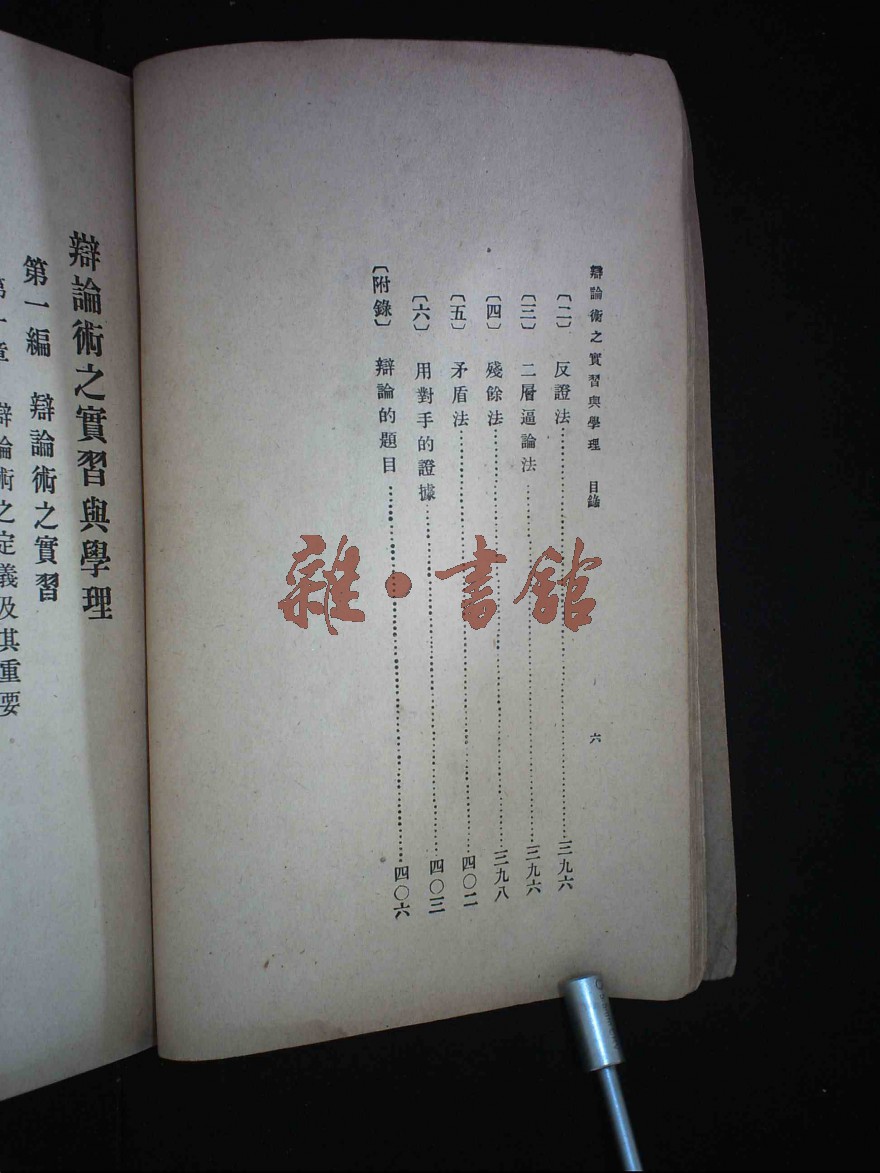 辯論術之實習與學理　目錄　六
〔二〕　反證法……三九六
〔三〕　二層逼論法……三九六
〔四〕　殘餘法……三九八
〔五〕　矛盾法……四〇二
〔六〕　用對手的證據……四〇三
〔附錄〕　辯論的題目……四〇六
辯論術之實習與學理
第一編　辯論術之實習
第一章　辯論術之定義及其重要
雜·書館